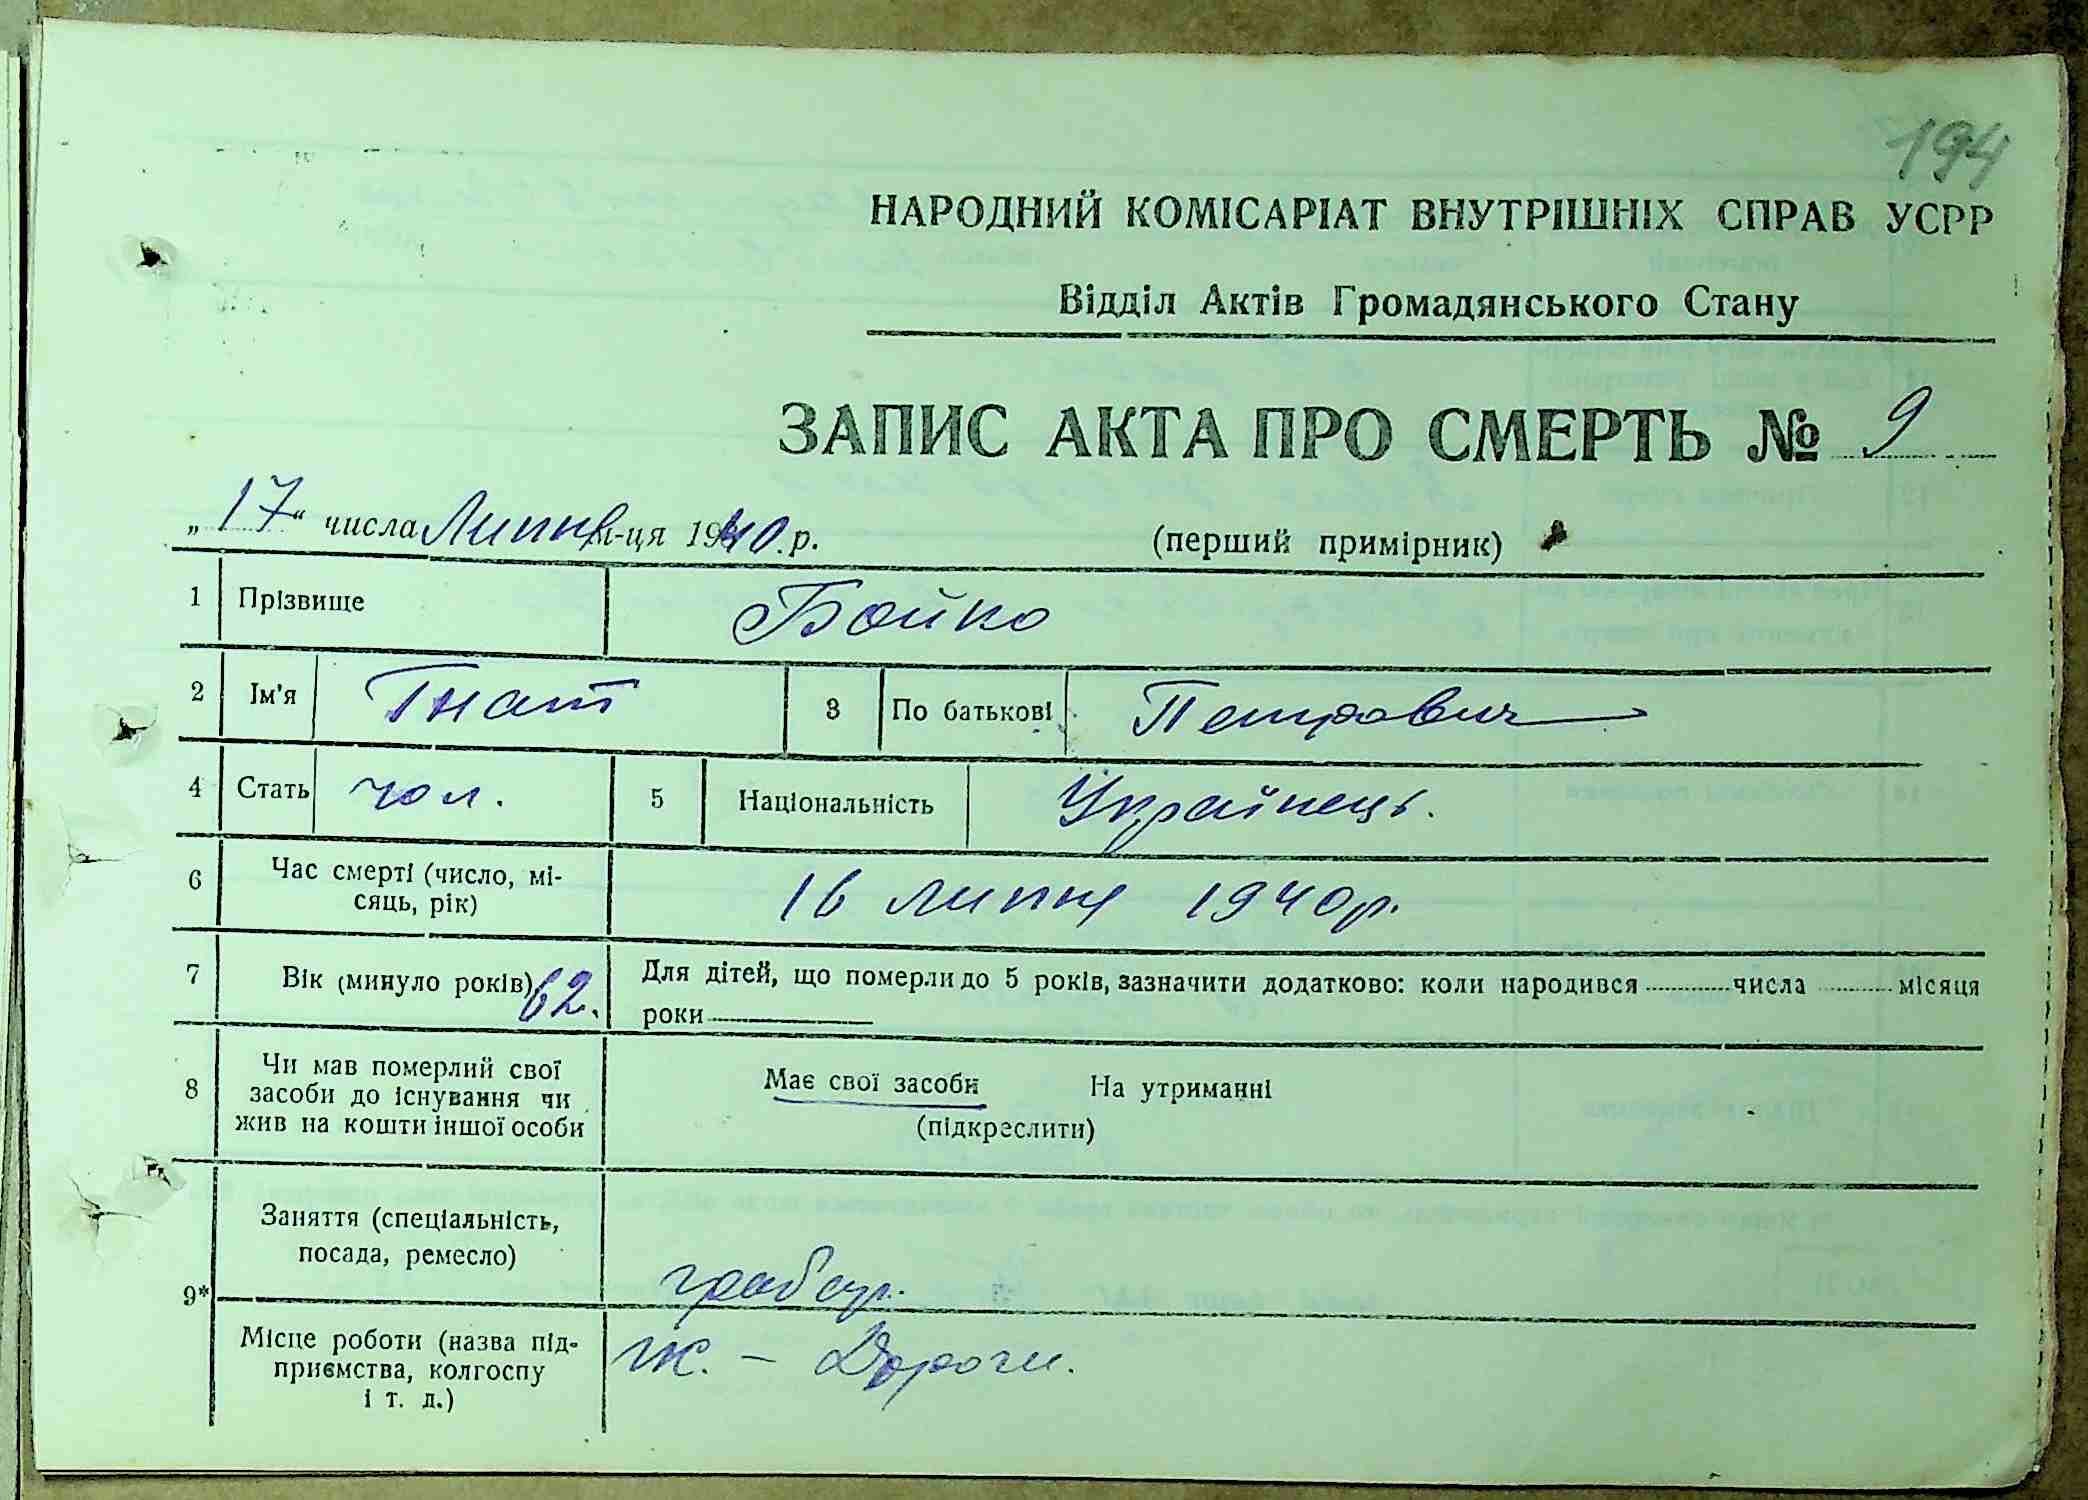 194
НАРОДНИЙ КОМІСАРІАТ ВНУТРІШНІХ СПРАВ УСРР
Відділ Актів Громадянського Стану
ЗАПИС АКТА ПРО СМЕРТЬ № 9
„17“ числа Липня м-ця 1940 р. (перший примірник)
1 Прізвище Бойко
2 Ім'я Гнат 3 По батькові Петрович
4 Стать чол. 5 Національність Українець.
6 Час смерті (число, мі-
сяць, рік) 16 липня 1940р.
7 Вік (минуло років) 62. Для дітей, що померли до 5 років, зазначити додатково: коли народився числа місяця
роки
8 Чи мав померлий свої
засоби до існування чи
жив на кошти іншої особи
Має свої засоби На утриманні
(підкреслити)
9* Заняття (спеціальність,
посада, ремесло)
Місце роботи (назва під-
приємства, колгоспу
і т. д.) Дороги.